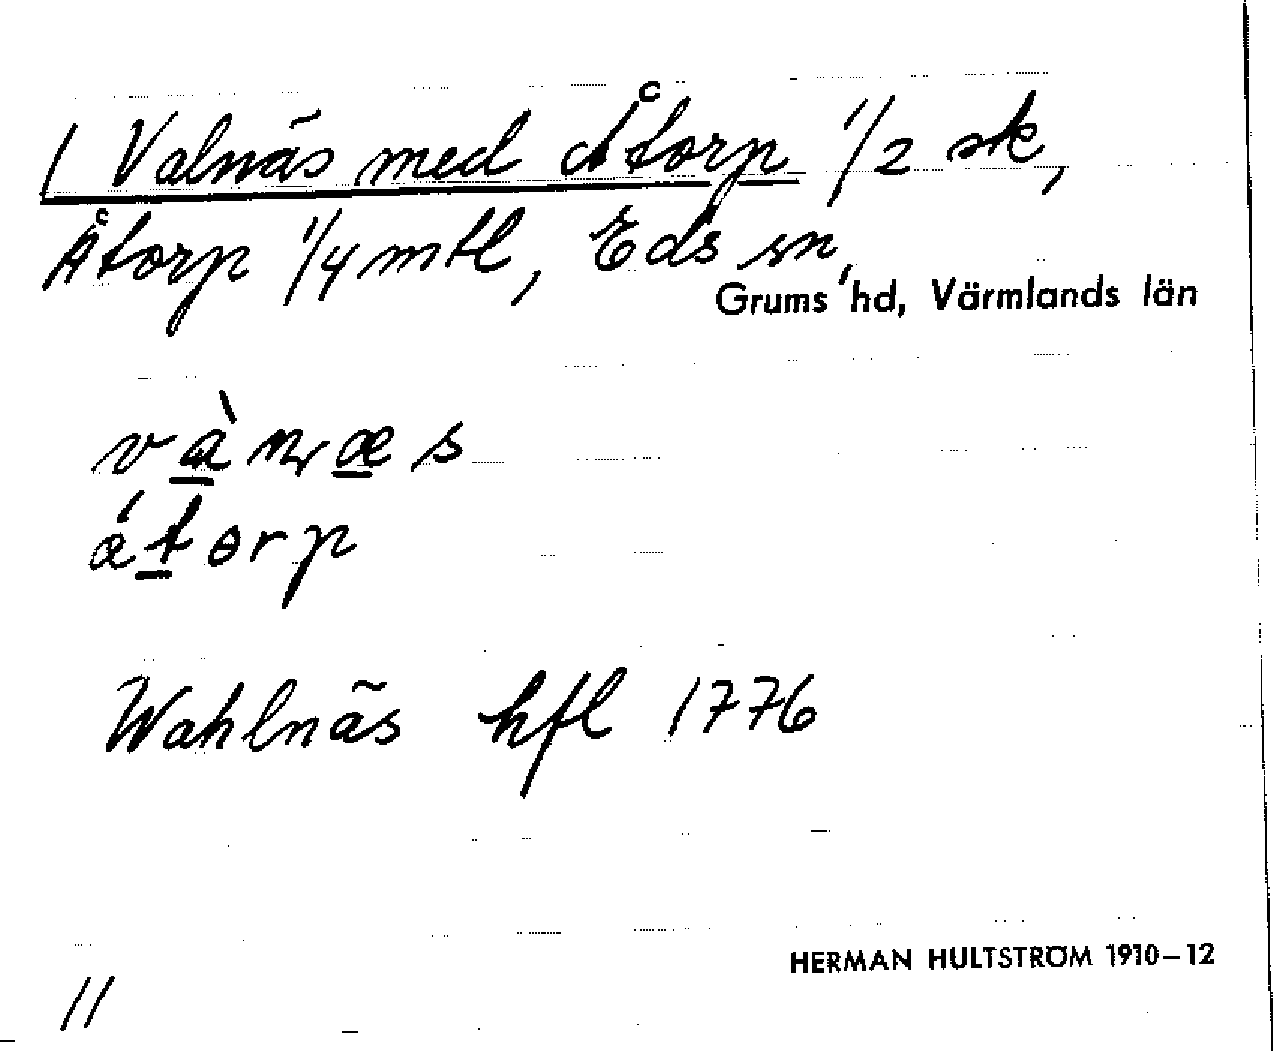 1 Valnäs med Åtorp 1/2 sk,
Åtorp 1/4 mtl, Eds sn,
Grums hd, Värmlands län
vànæs
átorp
Wahlnäs hfl 1776
HERMAN HULTSTRÖM 1910–12
11